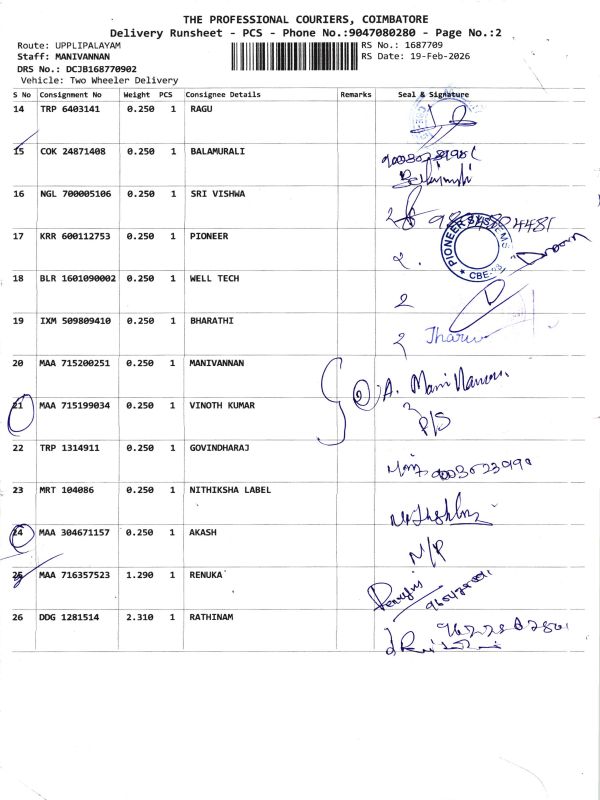 THE PROFESSIONAL COURIERS, COIMBATORE
Delivery Runsheet - PCS - Phone No.:9047080280 - Page No.:2
Route: UPPLIPALAYAM RS No.: 1687709
Staff: MANIVANNAN RS Date: 19-Feb-2026
DRS No.: DCJB168770902
Vehicle: Two Wheeler Delivery
S No Consignment No Weight PCS Consignee Details Remarks Seal & Signature
14 TRP 6403141 0.250 1 RAGU
15 COK 24871408 0.250 1 BALAMURALI
16 NGL 700005106 0.250 1 SRI VISHWA
17 KRR 600112753 0.250 1 PIONEER
PIONEER SYSTEMS
CBE
18 BLR 1601090002 0.250 1 WELL TECH
2
19 IXM 509809410 0.250 1 BHARATHI
2
20 MAA 715200251 0.250 1 MANIVANNAN
2 A. Mani Vannan
21 MAA 715199034 0.250 1 VINOTH KUMAR
P/S
22 TRP 1314911 0.250 1 GOVINDHARAJ
23 MRT 104086 0.250 1 NITHIKSHA LABEL
24 MAA 304671157 0.250 1 AKASH
N/P
25 MAA 716357523 1.290 1 RENUKA
26 DDG 1281514 2.310 1 RATHINAM